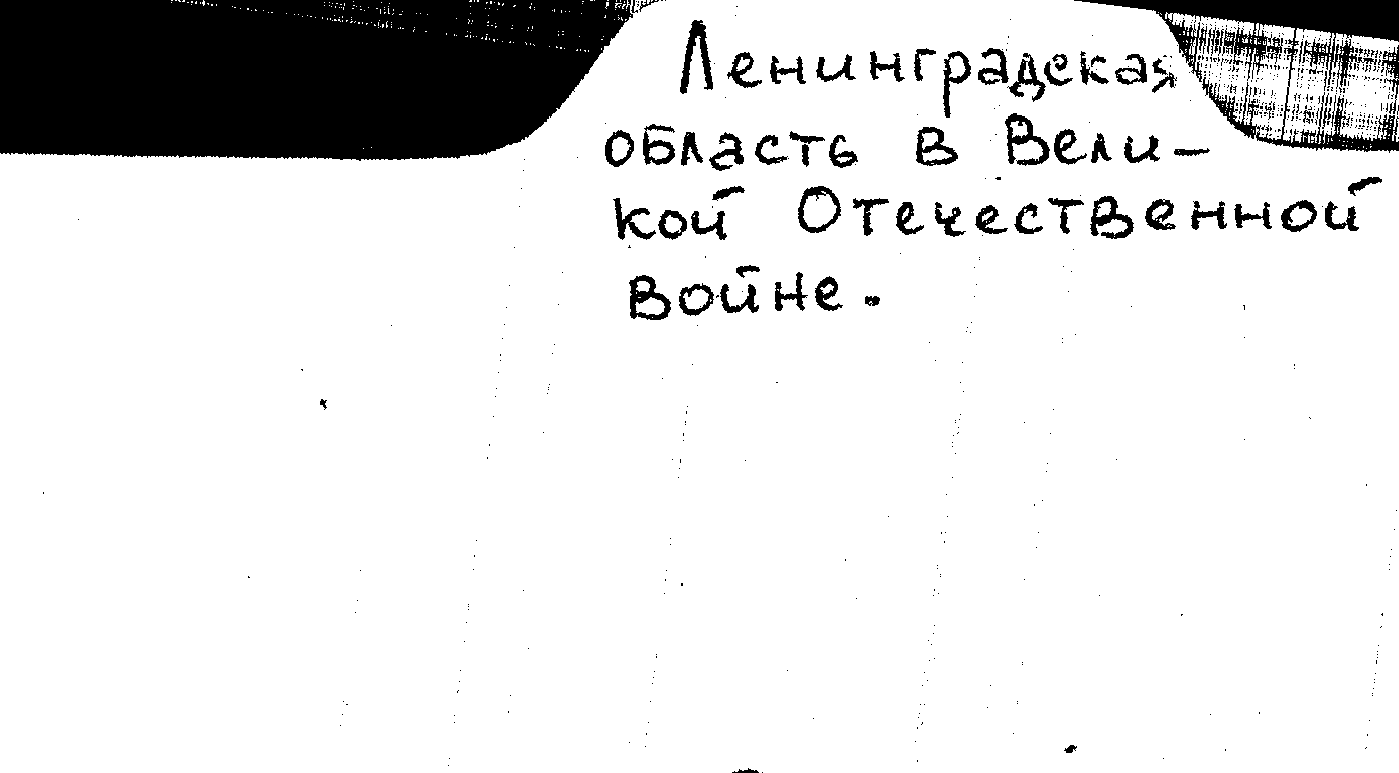 Ленинградская
область в Вели-
кой Отечественной
войне.